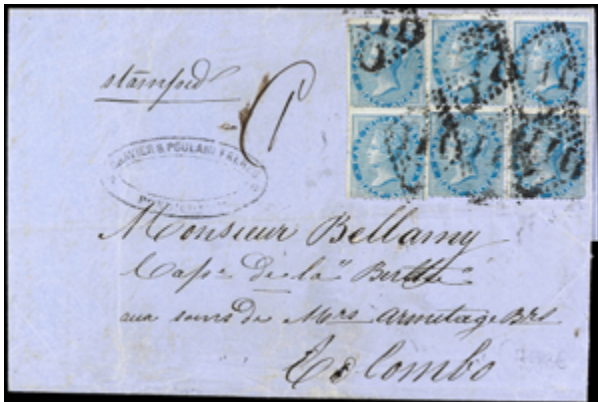 stamped
& POULAIN FRERES
Monsieur Bellamy
Cap.e de la "Berthe"
aux soins de Mrs Armitage Brs
Colombo